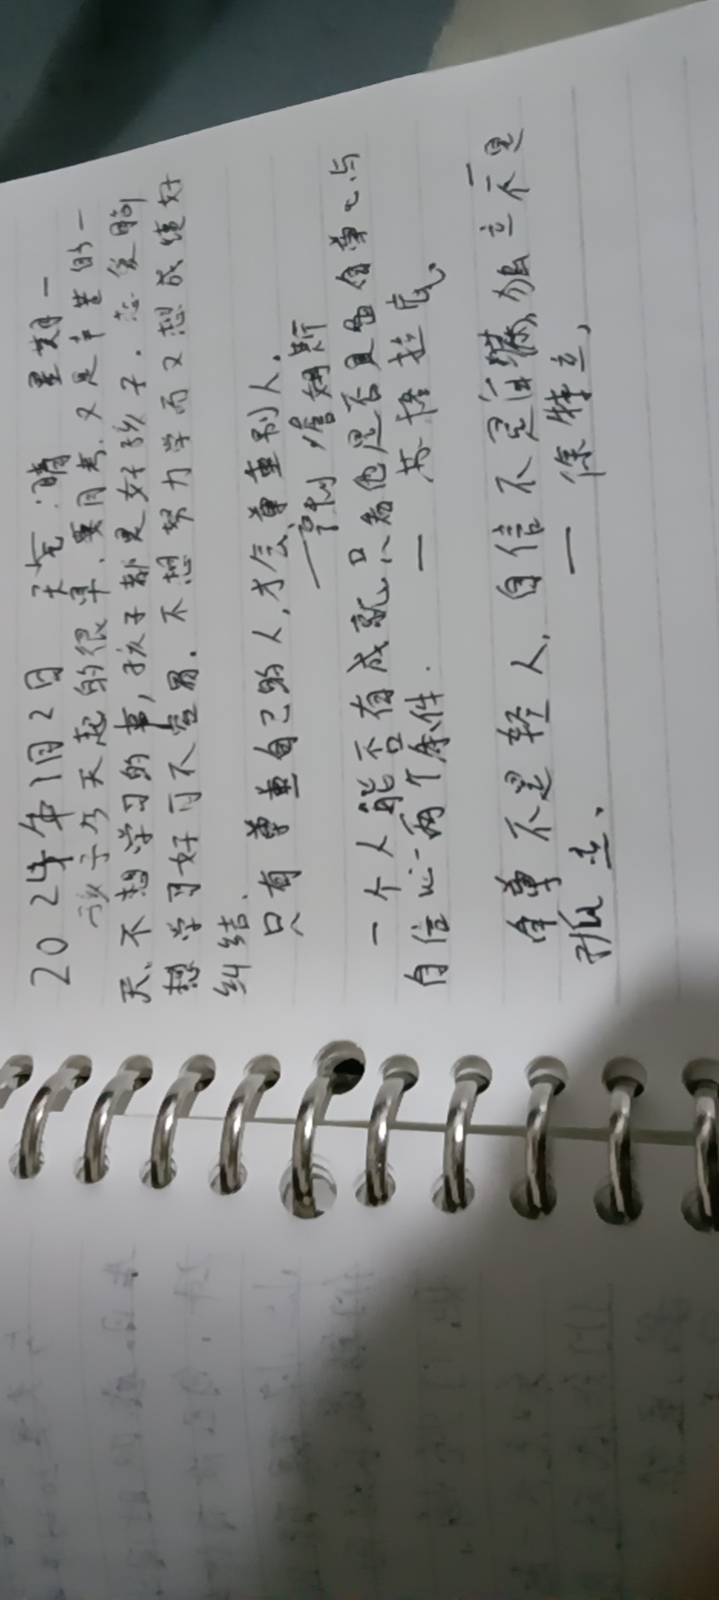 2024年1月2日 天气:晴 星期一
孩子今天起的很早,要月考,又是辛苦的一
天、不想学习的事,孩子都是好孩子.
想学习好可不容易.不想努力学而又想成绩好
纠结.
只有尊重自己的人,才会尊重别人.
—亨利·詹姆斯
一个人能否有成就只看他是否具备自尊心与
自信心两个条件. — 苏格拉底。
自尊不是轻人,自信不是自满,独立不是
孤立、 — 徐特立,